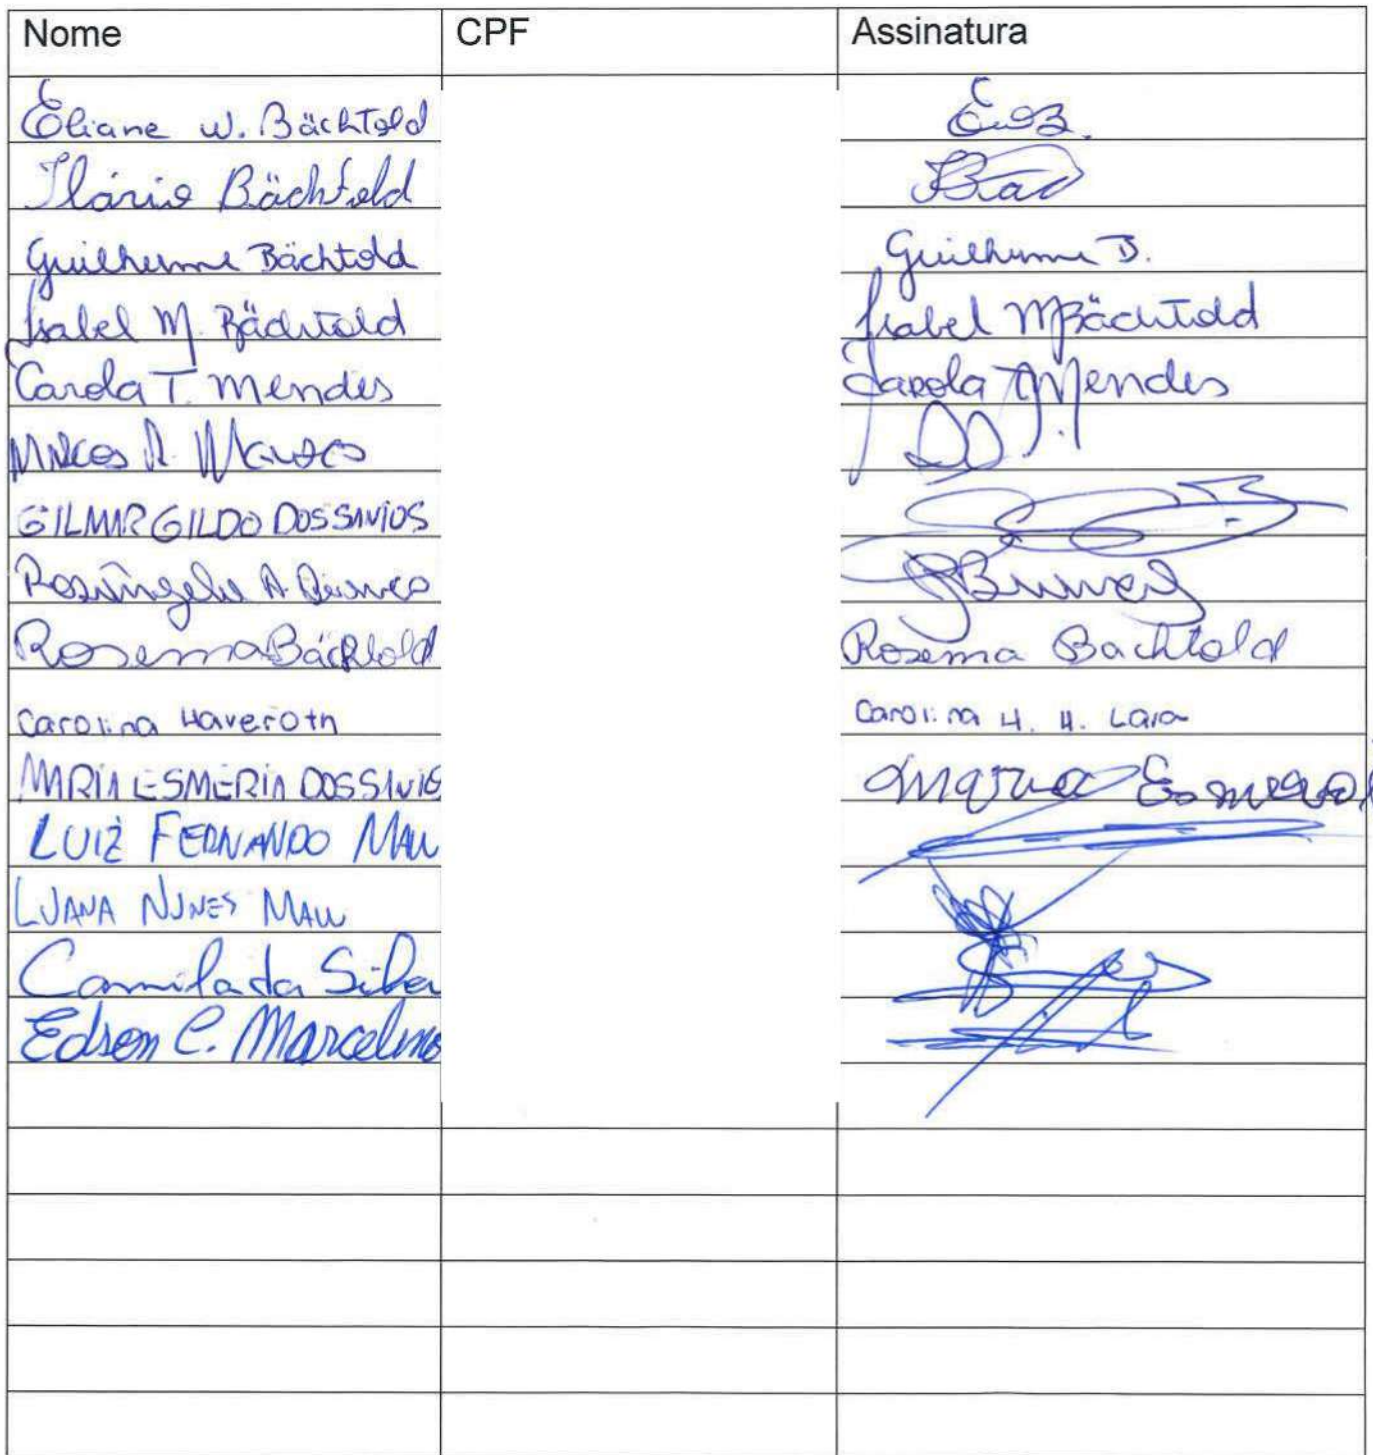 Nome CPF Assinatura
Eliane W. Bächtold EWB.
Ilário Bächtold
Guilherme Bächtold Guilherme B.
Isabel M. Bächtold Isabel M Bächtold
Carola T. Mendes Carola T Mendes
GILMAR GILDO DOS SANTOS
Rosangela A.
Rosema Bächtold Rosema Bachtold
Carolina Haveroth Carolina H. H. Lara
MARIA ESMERIA DOS SANTOS Maria
LUIZ FERNANDO MAU
LUANA NUNES MAU
Camila da Silva
Edson C. Marcelino